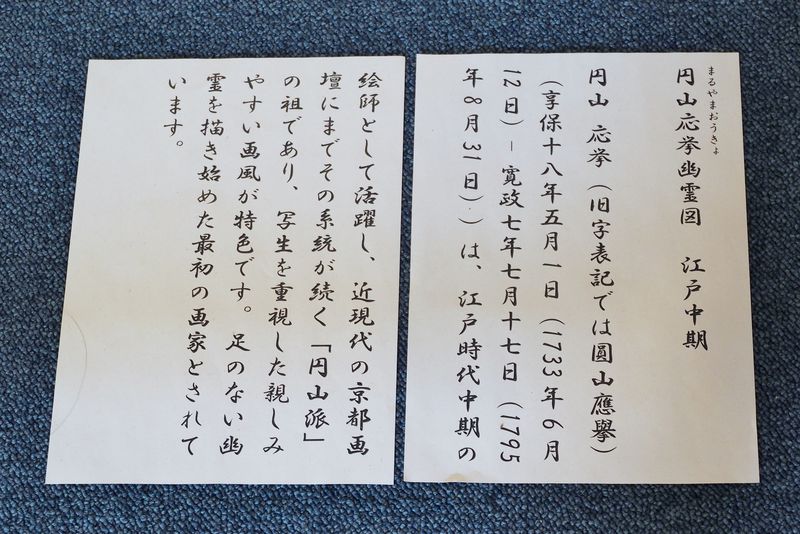 まるやまおうきょ
円山応挙幽霊図　江戸中期
円山　応挙（旧字表記では圓山應擧）
（享保十八年五月一日（1733年6月
12日）－寛政七年七月十七日（1795
年8月31日））は、江戸時代中期の
絵師として活躍し、近現代の京都画
壇にまでその系統が続く「円山派」
の祖であり、写生を重視した親しみ
やすい画風が特色です。足のない幽
霊を描き始めた最初の画家とされて
います。